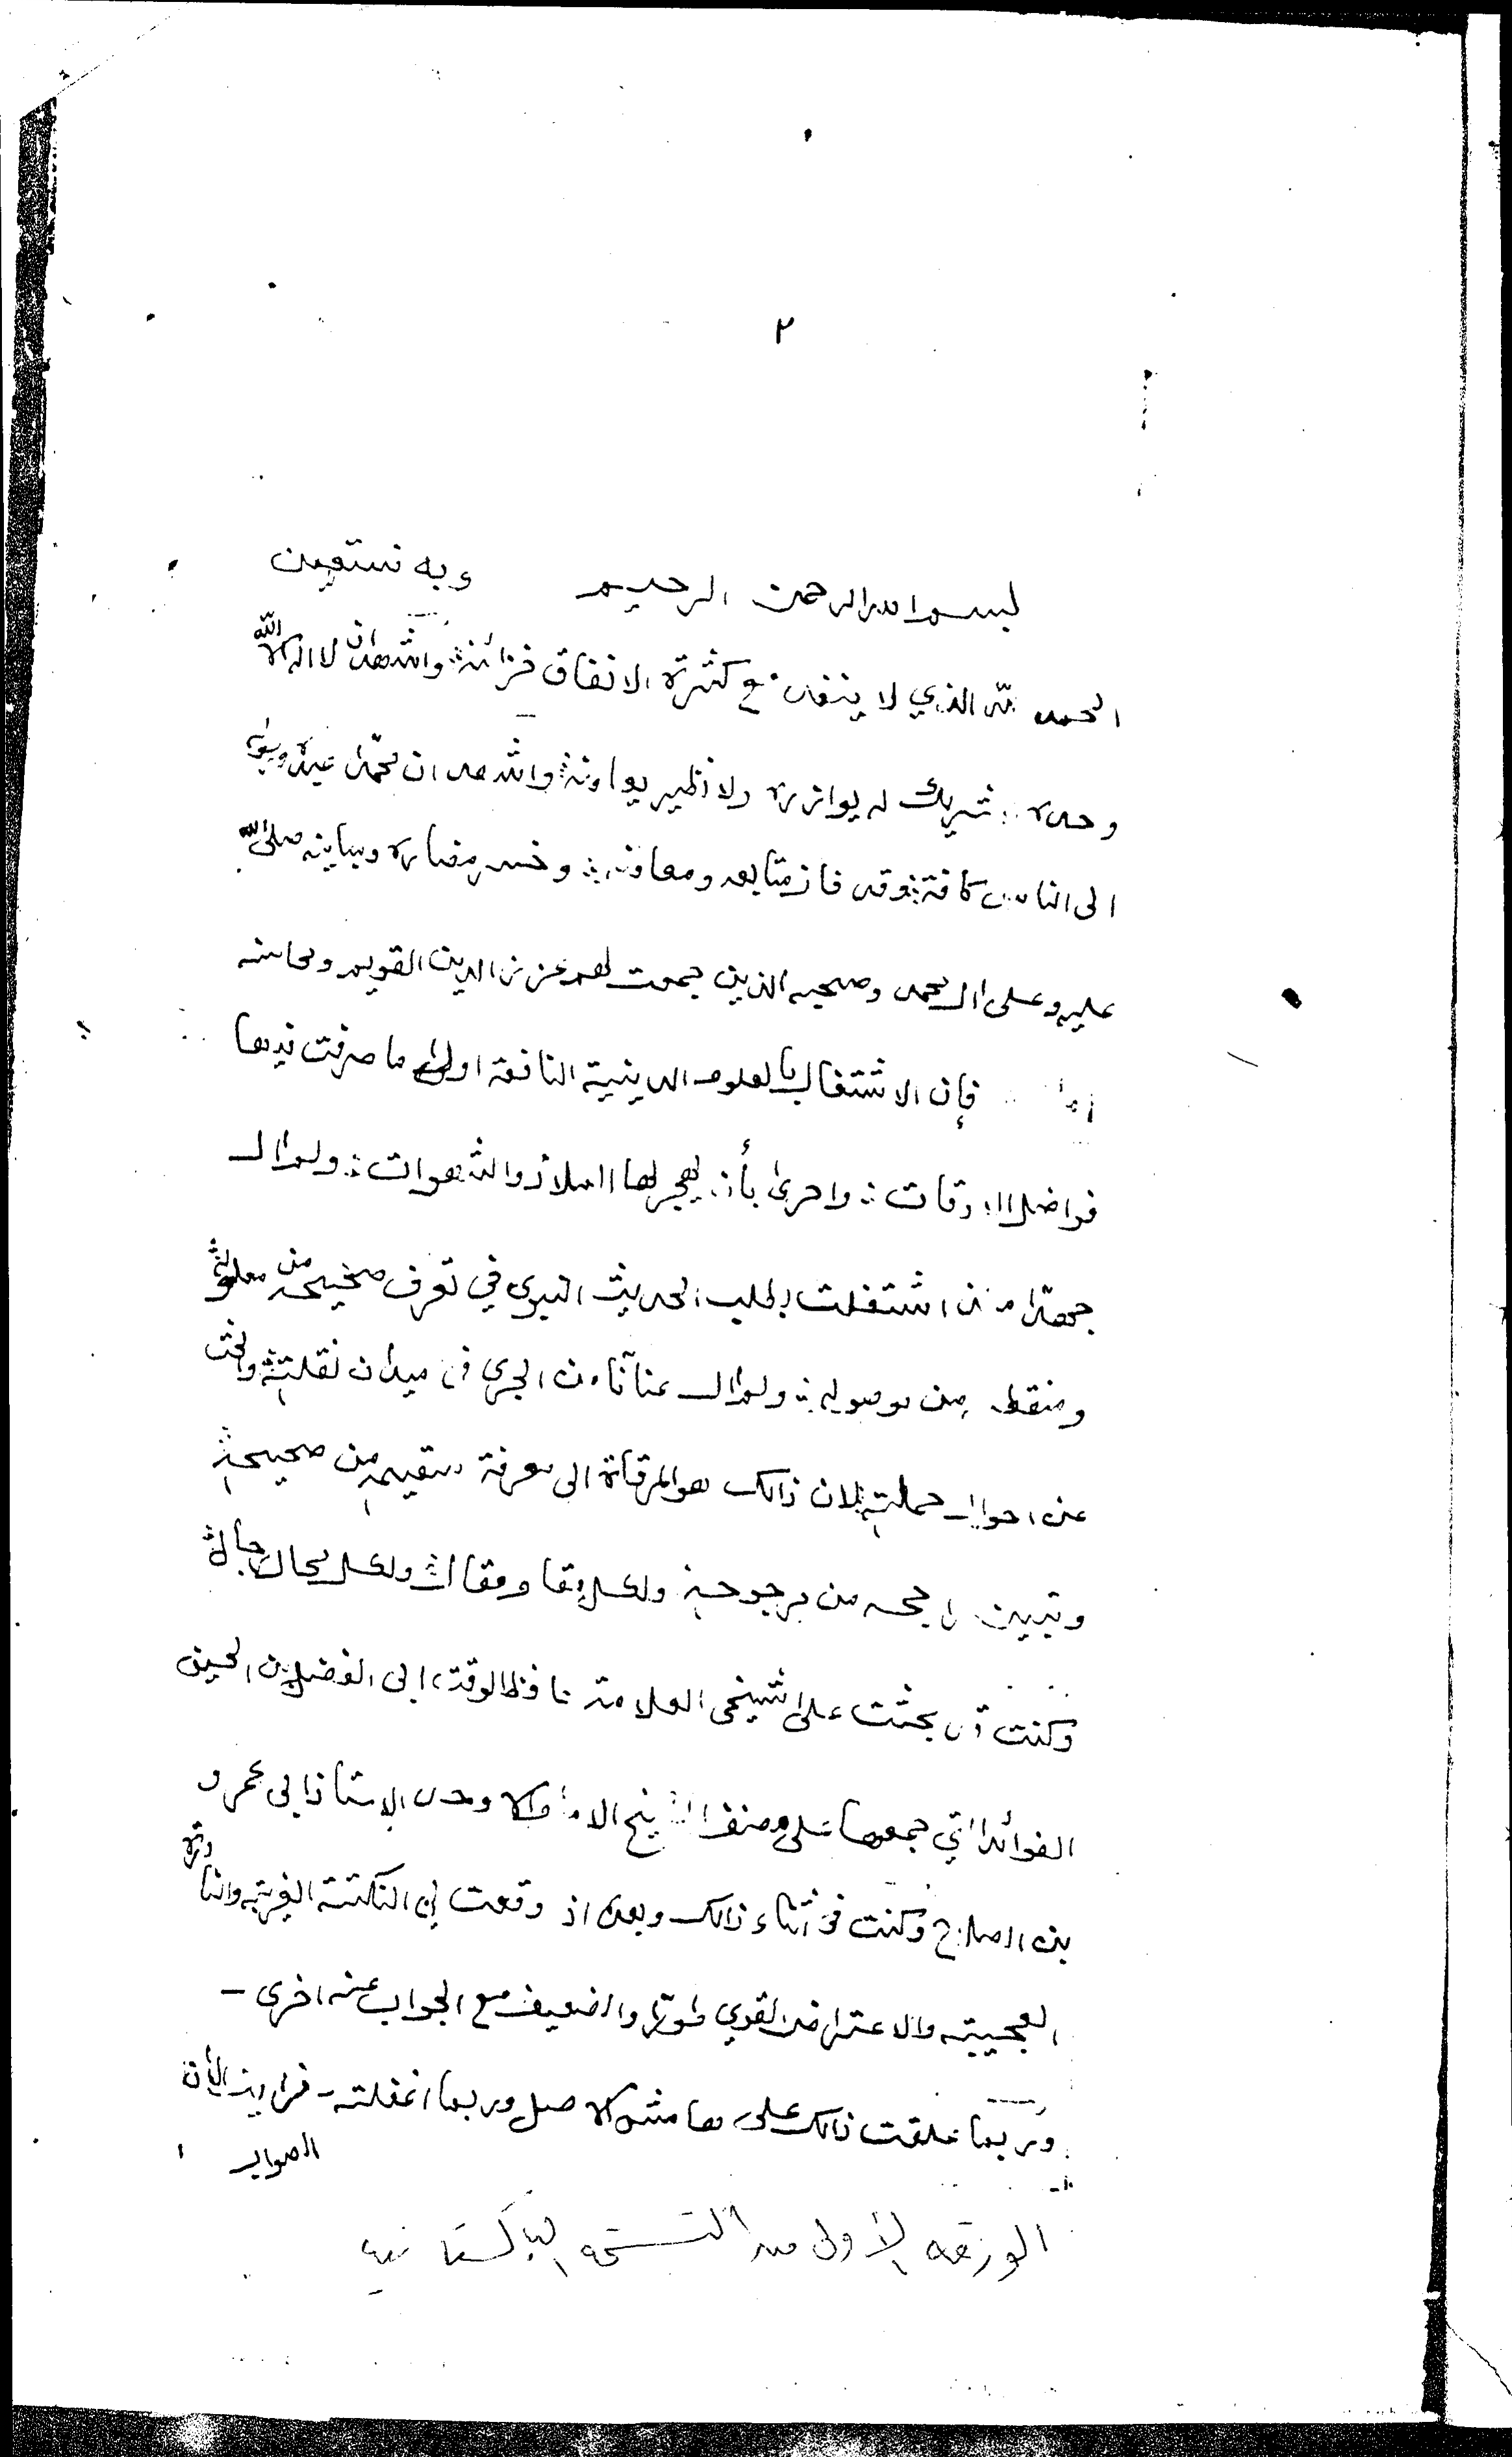 ٢
بسم الله الرحمن الرحيم وبه نستعين
الحمد لله الذي لا ينفد مع كثرة الانفاق خزائنه واشهد ان لا اله الا الله
وحده لا شريك له يوازره ولا نظير يعاونه واشهد ان محمدا عبده
الى الناس كافة وقد فاز متابعه ومعاونه وخسر مضاره ومباينه صلى الله
عليه وعلى ال محمد وصحبه الذين جمعت لهم عز الدين القويم ومحاسنه
اما فإن الاشتغال بالعلوم الدينية النافعة اولى ما صرفت فيها
فواضل الاوقات واحرى بأن يهجر لها الملاذ والشهوات ولم ال
جهدا منذ اشتغلت بطلب الحديث النبوي في تعرف صحيحه من معلوله
ومنقطعه من موصوله ولم ال عنانا من الجري في ميدان نقلته والبحث
عن احوال حملته لان ذالك هو المرقاة الى معرفة سقيمه من صحيحه
وتبيين راجحه من مرجوحه ولكل مقام مقال ولكل مجال رجال
وكنت قد بحثت على شيخي العلامة حافظ الوقت ابى الفضل بن الحسين
الفوائد التي جمعها على مصنف الشيخ الامام الاوحد الاستاذ ابى عمرو
بن الصلاح وكنت في أثناء ذالك وبعده اذ وقعت لي النكتة الغريبة والنادرة
العجيبة والاعتراض القوي طورا والضعيف مع الجواب عنه اخرى -
وربما علقت ذالك على هامش الاصل وربما اغفلته - فرايت الأن
الصواب
الورقة الأولى من النسخة الباكستانية